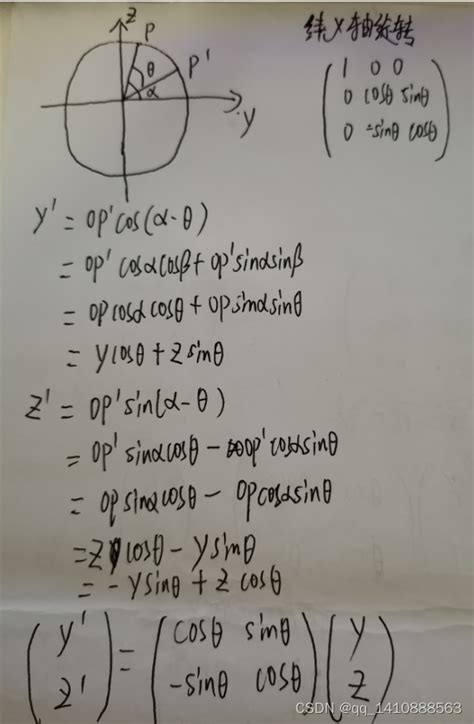 Z
P
θ
P'
α
Y
绕X轴旋转
1 0 0
0 cosθ sinθ
0 -sinθ cosθ
Y' = OP'cos(α-θ)
= OP'cosαcosβ+OP'sinαsinβ
= OPcosαcosθ+OPsinαsinθ
= Ycosθ+Zsinθ
Z' = OP'sin(α-θ)
= OP'sinαcosθ-OP'cosαsinθ
= OPsinαcosθ-OPcosαsinθ
=Zcosθ-Ysinθ
= -Ysinθ+Zcosθ
Y' = cosθ sinθ Y
Z' -sinθ cosθ Z
CSDN @qq_1410888563